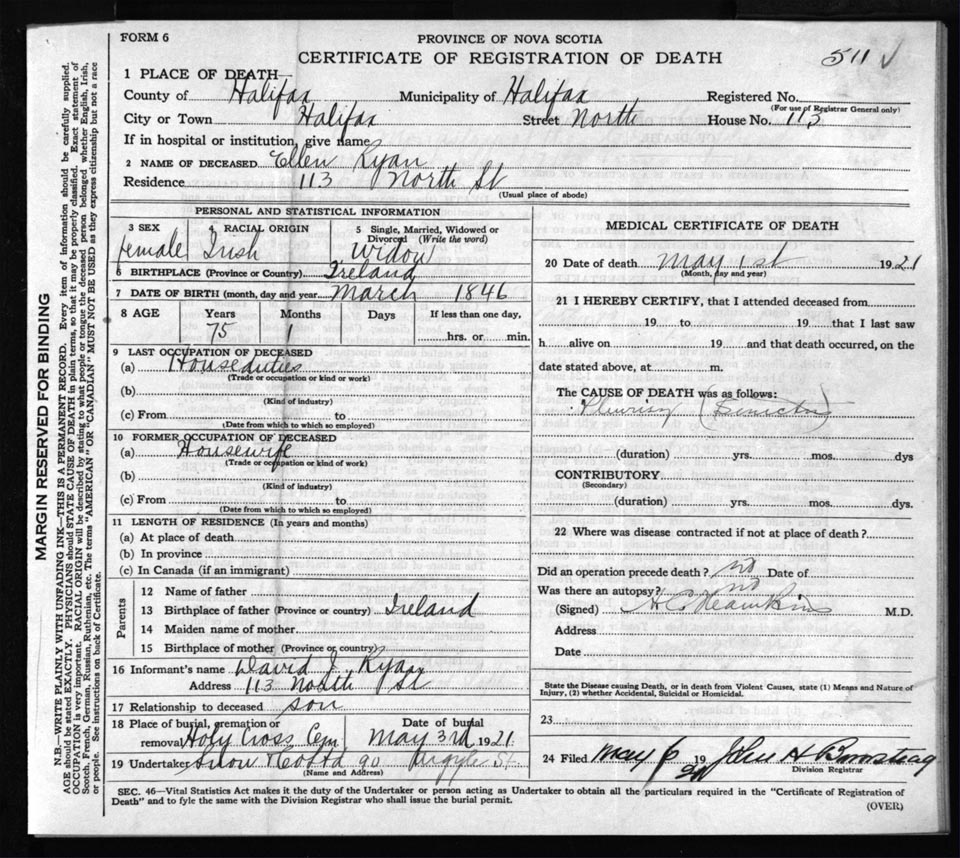 FORM 6
PROVINCE OF NOVA SCOTIA
CERTIFICATE OF REGISTRATION OF DEATH
511 √
1 PLACE OF DEATH
County of Halifax Municipality of Halifax Registered No.
(For use of Registrar General only)
City or Town Halifax Street North House No. 113
If in hospital or institution, give name
2 NAME OF DECEASED Ellen Ryan
Residence 113 North St
(Usual place of abode)
PERSONAL AND STATISTICAL INFORMATION
3 SEX female
4 RACIAL ORIGIN Irish
5 Single, Married, Widowed or Divorced (Write the word) Widow
6 BIRTHPLACE (Province or Country) Ireland
7 DATE OF BIRTH (month, day and year) March 1846
8 AGE Years 75 Months 1 Days If less than one day, hrs. or min.
9 LAST OCCUPATION OF DECEASED
(a) House duties
(Trade or occupation or kind or work)
(b)
(Kind of industry)
(c) From to
(Date from which to which so employed)
10 FORMER OCCUPATION OF DECEASED
(a) Housewife
(Trade or occupation or kind of work)
(b)
(Kind of industry)
(c) From to
(Date from which to which so employed)
11 LENGTH OF RESIDENCE (In years and months)
(a) At place of death
(b) In province
(c) In Canada (if an immigrant)
Parents
12 Name of father
13 Birthplace of father (Province or country) Ireland
14 Maiden name of mother
15 Birthplace of mother (Province or country)
16 Informant's name David J. Ryan
Address 113 North St
17 Relationship to deceased son
18 Place of burial, cremation or removal Holy Cross Cem Date of burial May 3rd 1921
19 Undertaker Snow 90 Argyle St
(Name and Address)
MEDICAL CERTIFICATE OF DEATH
20 Date of death May 1st 1921
(Month, day and year)
21 I HEREBY CERTIFY, that I attended deceased from
19 to 19 that I last saw
h alive on 19 and that death occurred, on the
date stated above, at m.
The CAUSE OF DEATH was as follows:
Pleurisy
(duration) yrs. mos. dys
CONTRIBUTORY
(Secondary)
(duration) yrs. mos. dys.
22 Where was disease contracted if not at place of death?
Did an operation precede death? no Date of
Was there an autopsy? no
(Signed) M.D.
Address
Date
State the Disease causing Death, or in death from Violent Causes, state (1) Means and Nature of
Injury, (2) whether Accidental, Suicidal or Homicidal.
23
24 Filed May 6 19 21 John H
Division Registrar
SEC. 46—Vital Statistics Act makes it the duty of the Undertaker or person acting as Undertaker to obtain all the particulars required in the "Certificate of Registration of
Death" and to fyle the same with the Division Registrar who shall issue the burial permit.
(OVER)
MARGIN RESERVED FOR BINDING
N.B.—WRITE PLAINLY WITH UNFADING INK—THIS IS A PERMANENT RECORD. Every item of information should be carefully supplied.
AGE should be stated EXACTLY. PHYSICIANS should STATE CAUSE OF DEATH in plain terms, so that it may be properly classified. Exact statement of
OCCUPATION is very important. RACIAL ORIGIN will be described by stating to what people or tongue the deceased person belonged whether English, Irish,
Scotch, French, German, Russian, Ruthenian, etc. The terms "AMERICAN" OR "CANADIAN" MUST NOT BE USED as they express citizenship but not a race
or people. See instructions on back of Certificate.